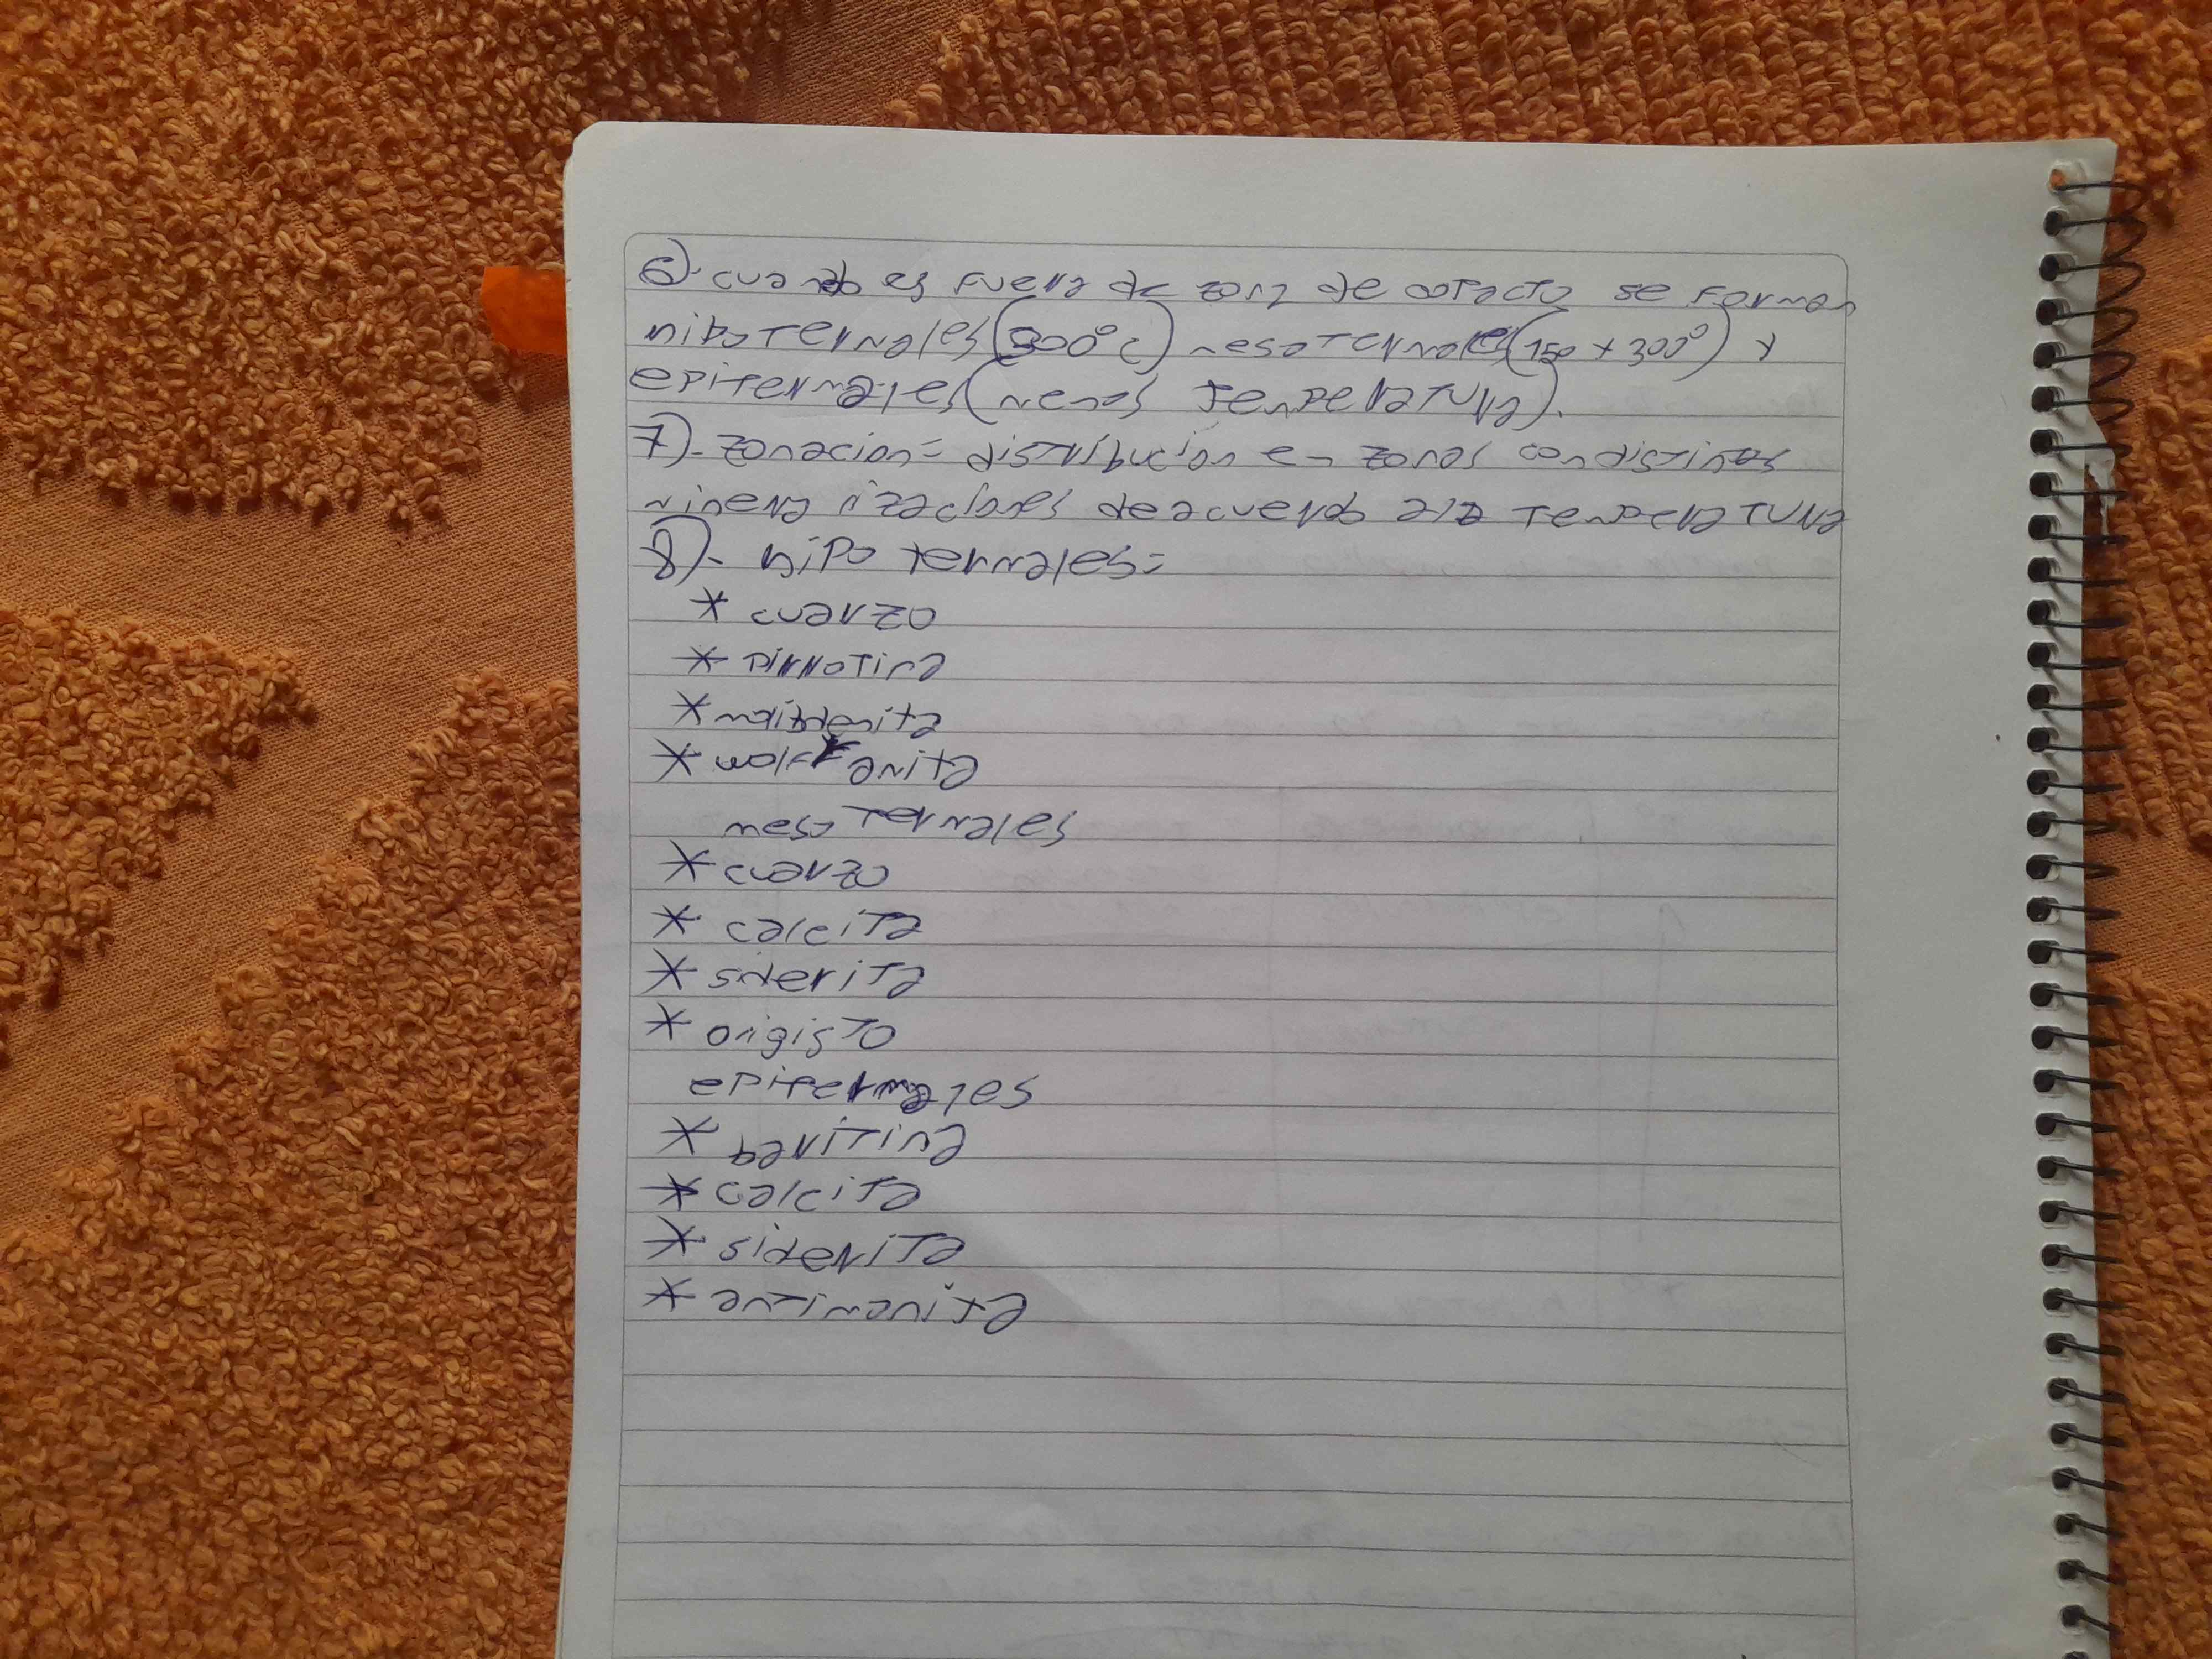 6).cuando es fuera de zona de cotacto se forman
hipotermales(300°c) mesotermales(150 y 300°) y
epitermales(menos temperatura).
7).- zonacion= distribucion en zonas con distintas
mineralizaciones deacuerdo a la temperatura
8).- hipotermales=
* cuarzo
* pirrotina
* molibdenita
* wolframita
mesotermales
* cuarzo
* calcita
* siderita
* origisto
epitermales
* baritina
* calcita
* siderita
* antimonita